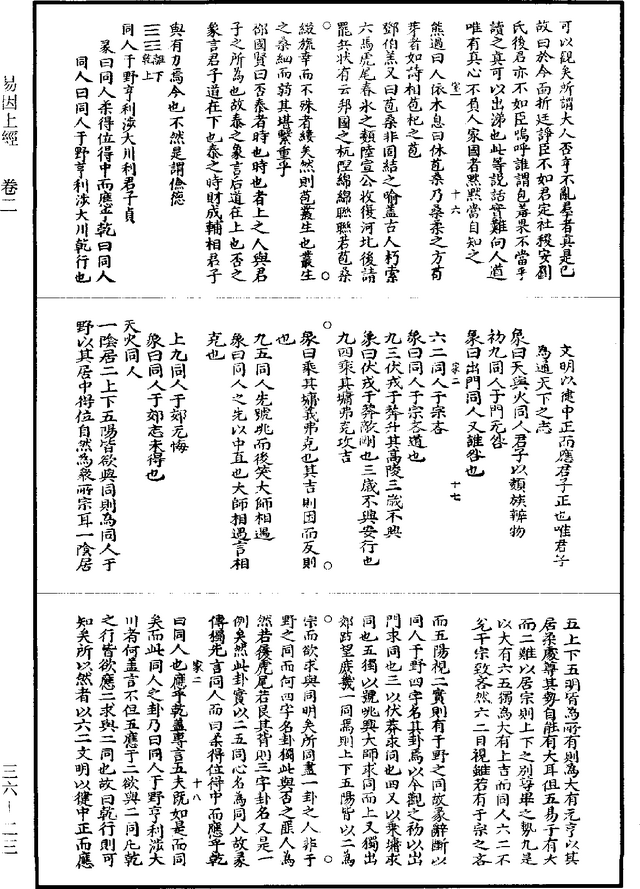 易因上經　卷二
三六－二三
可以觀矣所謂大人否亨不亂羣者真是已
故曰於今而折廷諍臣不如君定社稷安劉
氏後君亦不如臣嗚呼誰謂包羞果不當乎
讀之真可以出涕也此等說話實難向人道
唯有真心不負人家國者黙黙當自知之
家二　十六
熊過曰人依木息曰休苞桑乃桑柔之方苟
芽者如詩相苞杞之苞
鄧伯羔又曰苞桑非固結之喻蓋古人朽索
六馬虎尾春氷之類陸宣公收復河北後請
罷兵狀有云邦國之杌隉綿綿聯聯若苞桑
綴旒幸而不殊者縷矣然則苞叢生也叢生
之桑細而弱其堪繫重乎
鄒國賢曰否泰者時也時也者上之人與君
子之所為也故泰之象言后道在上也否之
象言君子道在下也泰之時財成輔相君子
與有力焉今也不然是謂儉德
離下乾上
同人于野亨利涉大川利君子貞
彖曰同人柔得位得中而應乎乾曰同人
同人曰同人于野亨利涉大川乾行也
文明以健中正而應君子正也唯君子
為通天下之志
象曰天與火同人君子以類族辨物
初九同人于門无咎
象曰出門同人又誰咎也
家二　十七
六二同人于宗吝
象曰同人于宗吝道也
九三伏戎于莽升其高陵三歲不興
象曰伏戎于莽敵剛也三歲不興安行也
九四乘其墉弗克攻吉
象曰乘其墉義弗克也其吉則困而反則
也
九五同人先號咷而後笑大師相遇
象曰同人之先以中直也大師相遇言相
克也
上九同人于郊无悔
象曰同人于郊志未得也
天火同人
一陰居二上下五陽皆欲與同則為同人于
野以其居中得位自然為眾所宗耳一陰居
五上下五明皆為所有則為大有元亨以其
居柔處尊其勢自能有大耳但五易于有大
而二難以居宗則上下之別尊卑之勢九是
以大有六五獨為大有上吉而同人六二不
免于宗致吝然六二自視雖若有于宗之吝
而五陽視二實則有于野之同故彖辭斷以
同人于野四字名其卦焉以今觀之初以出
門求同也三以伏莽求同也四又以乘墉求
同也五獨以號咷興大師求同而上又獨出
郊跂望庶幾一同焉則上下五陽皆以二為
宗而欲求與同明矣所同盡一卦之人非于
野之同而何四字名卦獨此與否之匪人為
然若履虎尾若艮其背則三字卦名又是一
例矣然此卦實以二五同心名為同人故彖
傳獨先言同人而曰柔得位得中而應乎乾
家二　十八
曰同人也應乎乾蓋專言五夫既如是而同
矣而此同人之卦乃曰同人于野亨利涉大
川者何蓋言不但五應于二欲與二同凡乾
之行皆欲應二求與二同也故曰乾行則可
知矣所以然者以六二文明以健中正而應